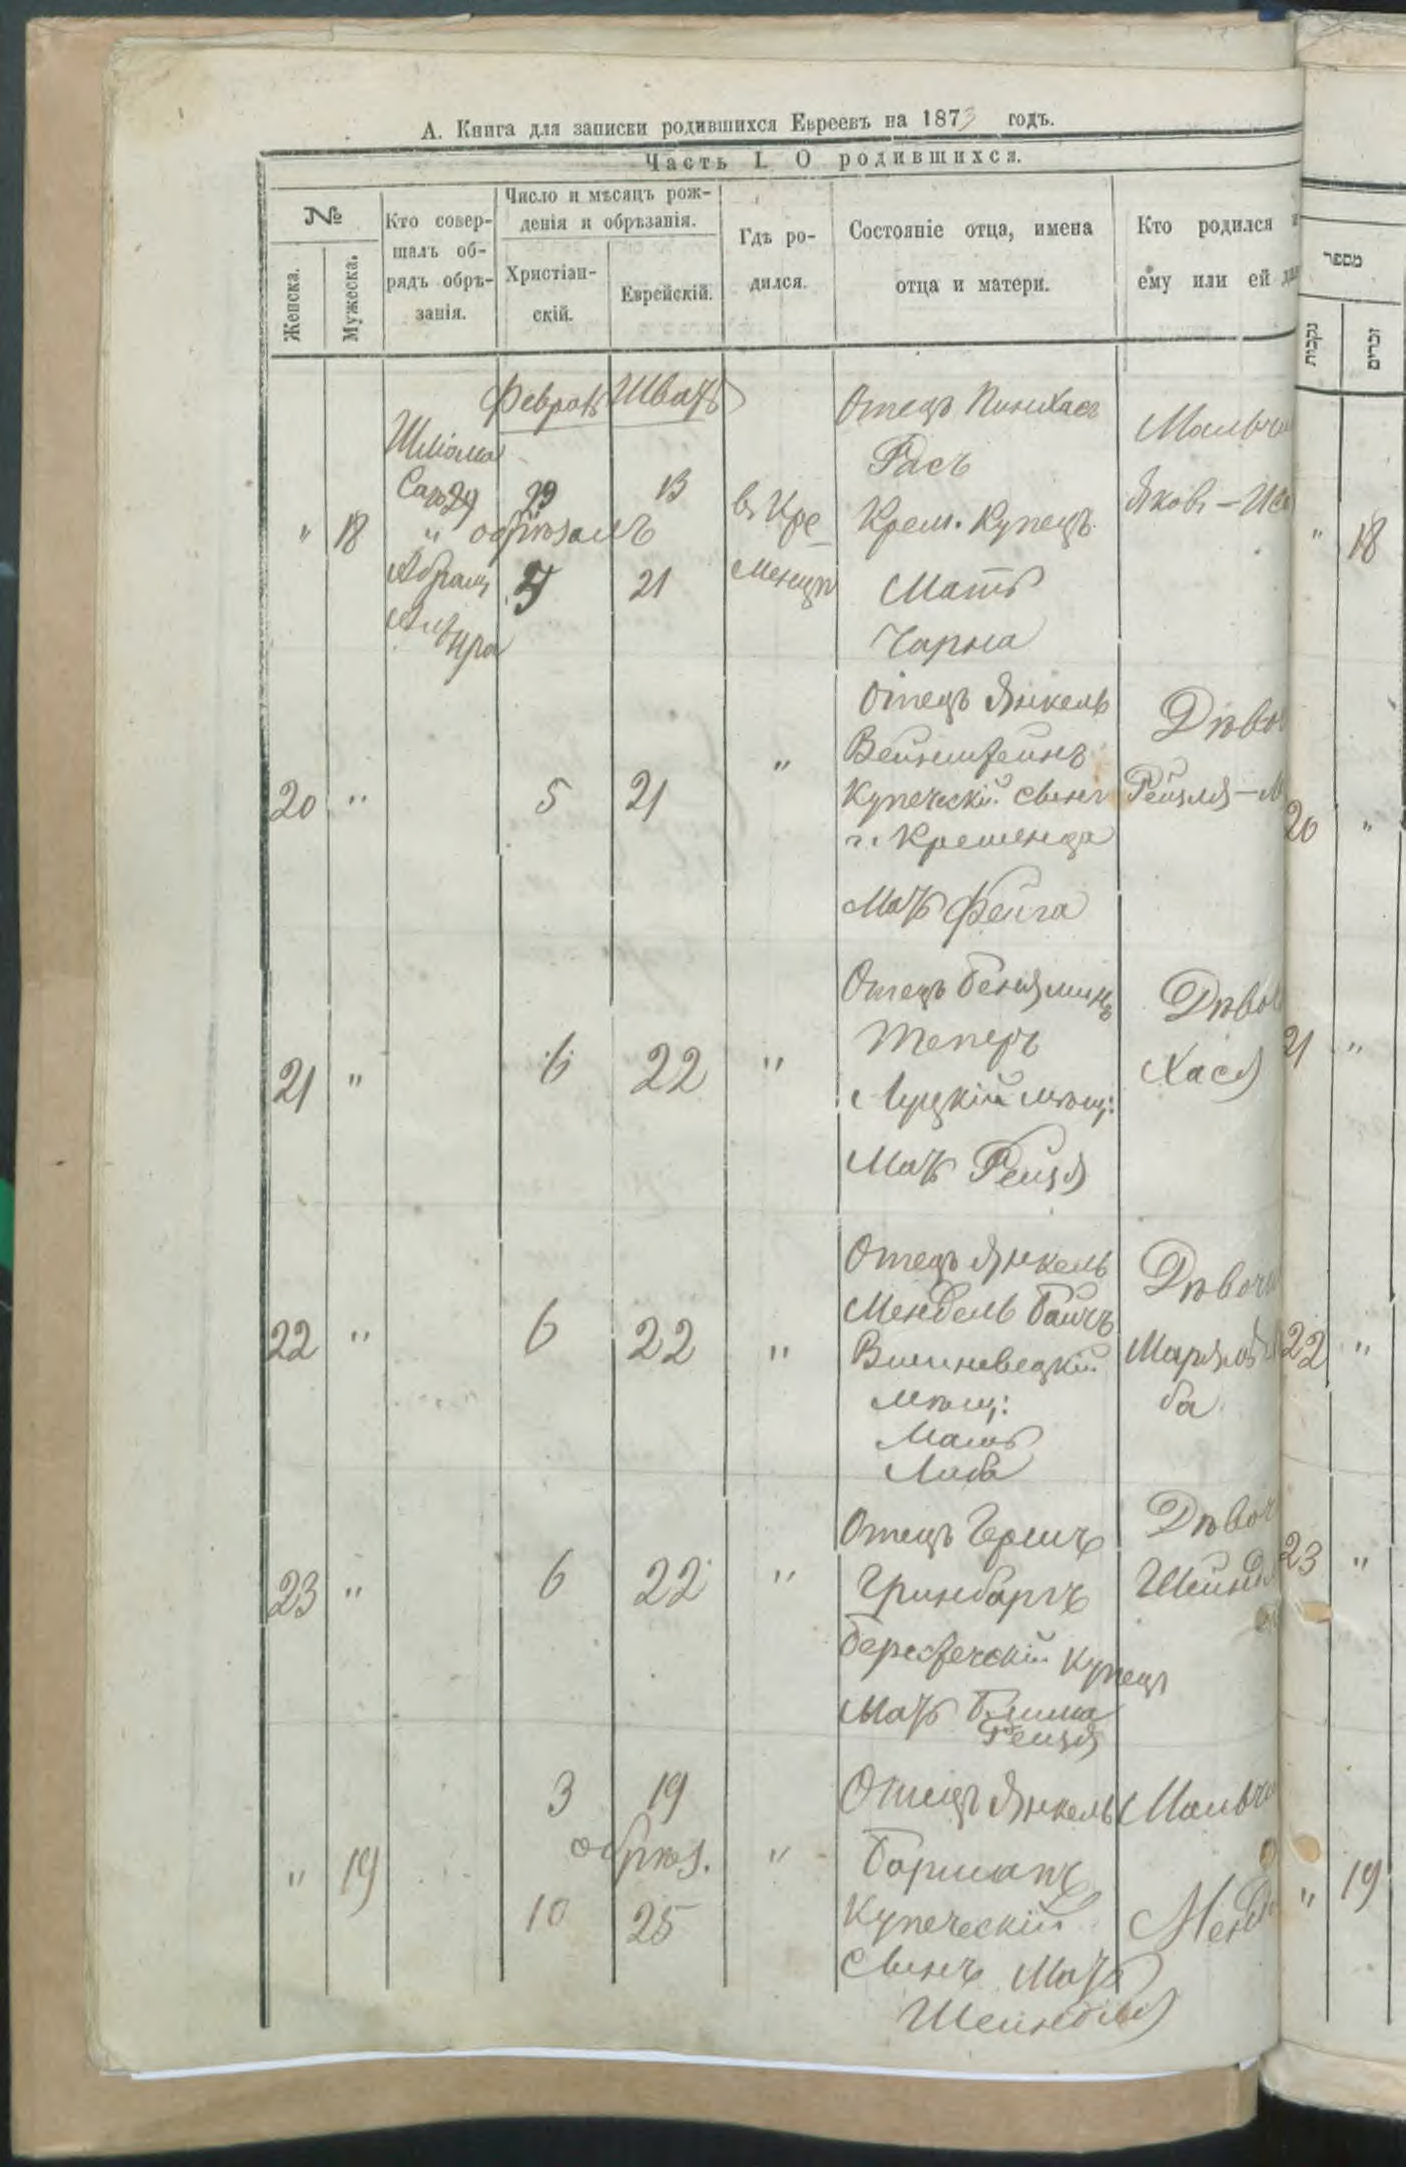 А. Книга для записки родившихся Евреевъ на 1873 годъ.
Часть I. О родившихся.
№
Женска.
Мужеска.
Кто совер-
шалъ об-
рядъ обрѣ-
занія.
Число и мѣсяцъ рож-
денія и обрѣзанія.
Христіан-
скій.
Еврейскій.
Гдѣ ро-
дился.
Состояніе отца, имена
отца и матери.
Кто родился и
ему или ей
מספר
נקבות
זכרים
Шліома
" 18
"
Абрамъ
Февраль Шватъ
29 13
обрѣзалъ
5 21
въ Кре
менцѣ
Отецъ Пинхасъ
Расъ
Крем. Купецъ
Мать
Чарна
Мальчи
Яковъ - Ис
" 18
20 "
5 21
"
Отецъ Янкель
Вейнштейнъ
Купеческій сынъ
г. Кременца
Мать Фейга
Дѣвоч
Рейзля - М
20 "
21 "
6 22
"
Отецъ Беніяминъ
Теперъ
Луцкій мѣщ:
Мать Рейзя
Дѣвоч
Хася
21 "
22 "
6 22
"
Отецъ Янкель
Мендель Байчъ
Вишневецкій
мѣщ:
Мать
Либа
Дѣвочк
ба
22 "
23 "
6 22
"
Отецъ Гершъ
Гринбаргъ
Берестечскій Купецъ
Мать Блима
Рейзя
Дѣвоч
Шейнд
23 "
" 19
3 19
обрѣз.
10 25
"
Отецъ Янкель
Барматъ
Купеческій
Сынъ Мать
Шейндля
Мальчи
Менд
" 19